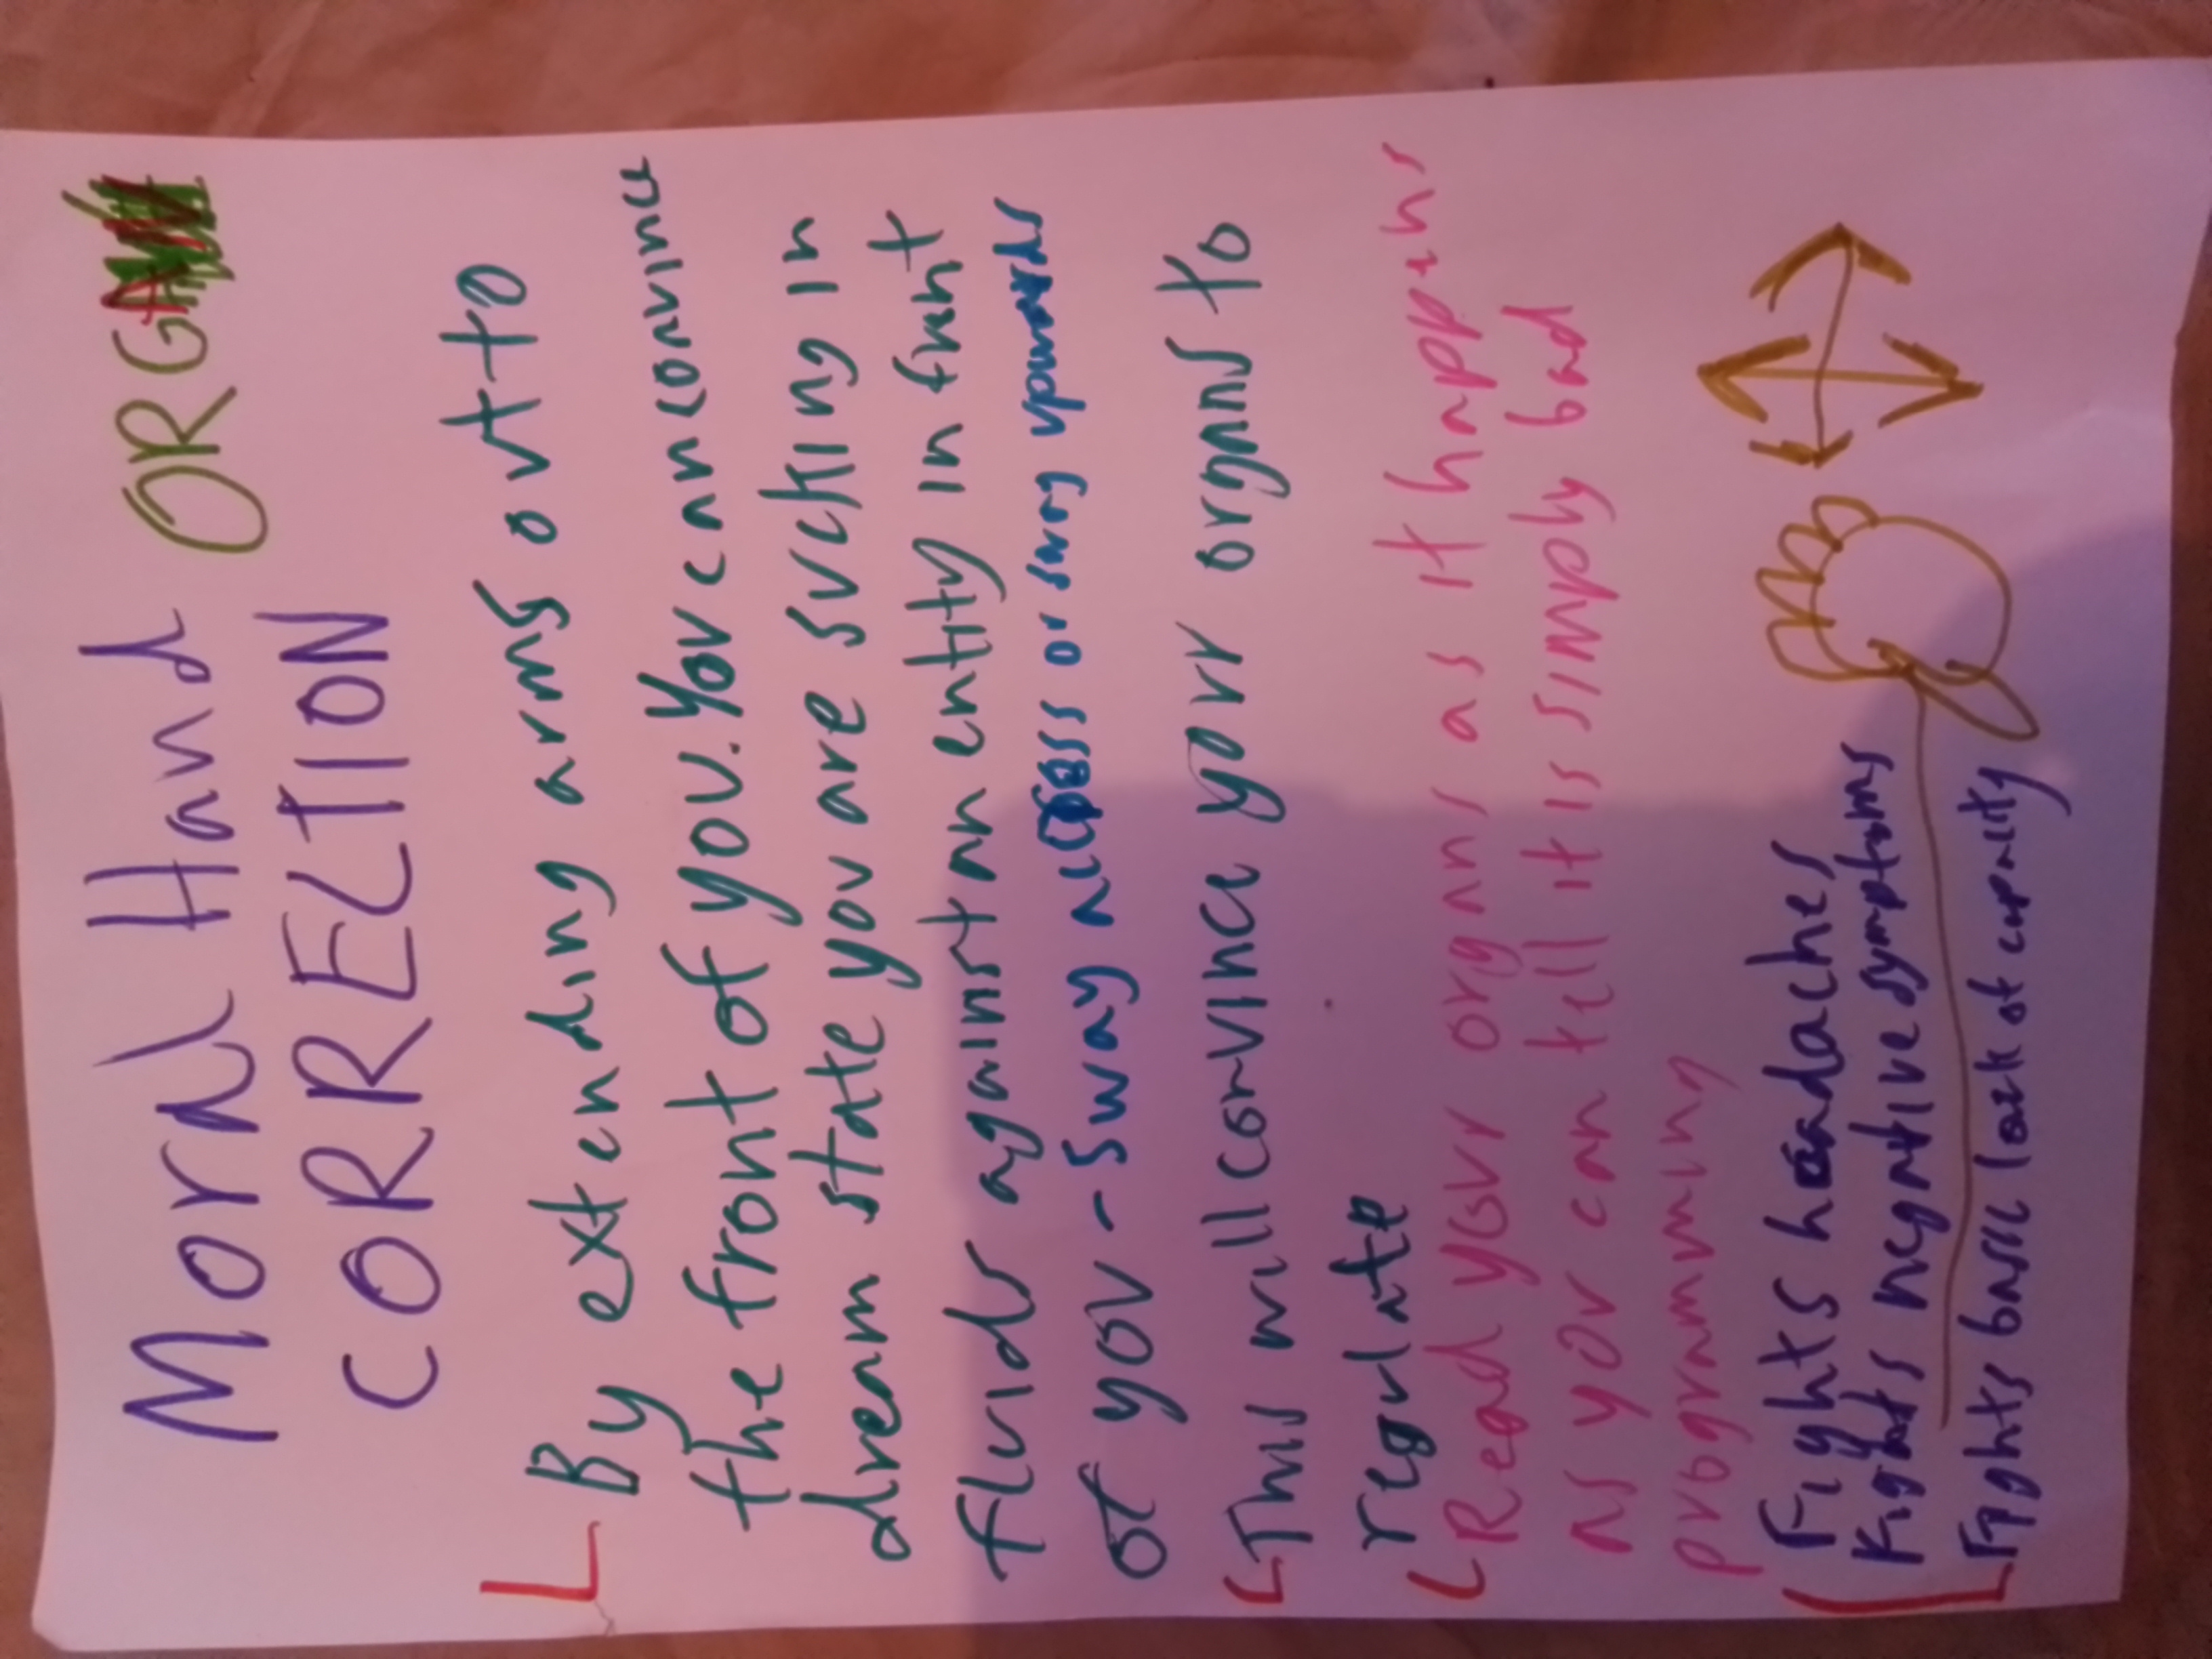 Moral Hand ORG
CORRECTION
By extending arms out to
the front of you. your unconcious
dream state you are switching in
fluids against entity in that
of you - swaying
This will convince your organs to
regulate
Read your organs as it happens
as you can tell it is simply bad
programming
Fights headaches
Fights negative symptoms
Fights basic lack of capacity